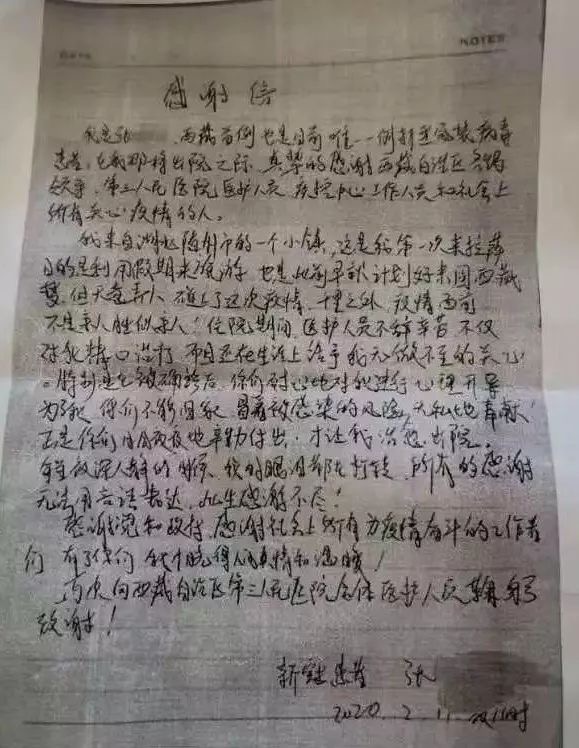 NOTES
感谢信
我是张 西藏首例也是目前唯一一例新型冠状病毒
患者，在我即将出院之际，真挚的感谢西藏自治区各级
领导、第三人民医院医护人员 疾控中心工作人员和社会上
所有关心疫情的人。
我来自湖北随州市的一个小镇，这是我第一次来拉萨
目的是利用假期来旅游，也是此前早就计划好来圆西藏
梦，但天意弄人 碰上了这次疫情，千里之外，疫情面前
不是亲人胜似亲人！住院期间，医护人员不辞辛苦 不仅
对我精心治疗，而且还在生活上给予我无微不至的关心
。特别是在被确诊后，你们耐心地对我进行心理开导
为了我 你们不能回家，冒着被感染的风险，无私地奉献
正是你们日日夜夜地辛勤付出，才让我治愈出院。
每在夜深人静的时候，我的眼泪都在打转，所有的感谢
无法用言语表达，此生感谢不尽！
感谢党和政府，感谢社会上所有为疫情奋斗的工作者
们 有了你们 我才能 真情和温暖！
再次向西藏自治区第三人民医院全体医护人员鞠躬
致谢！
新冠患者 张
2020.2.11